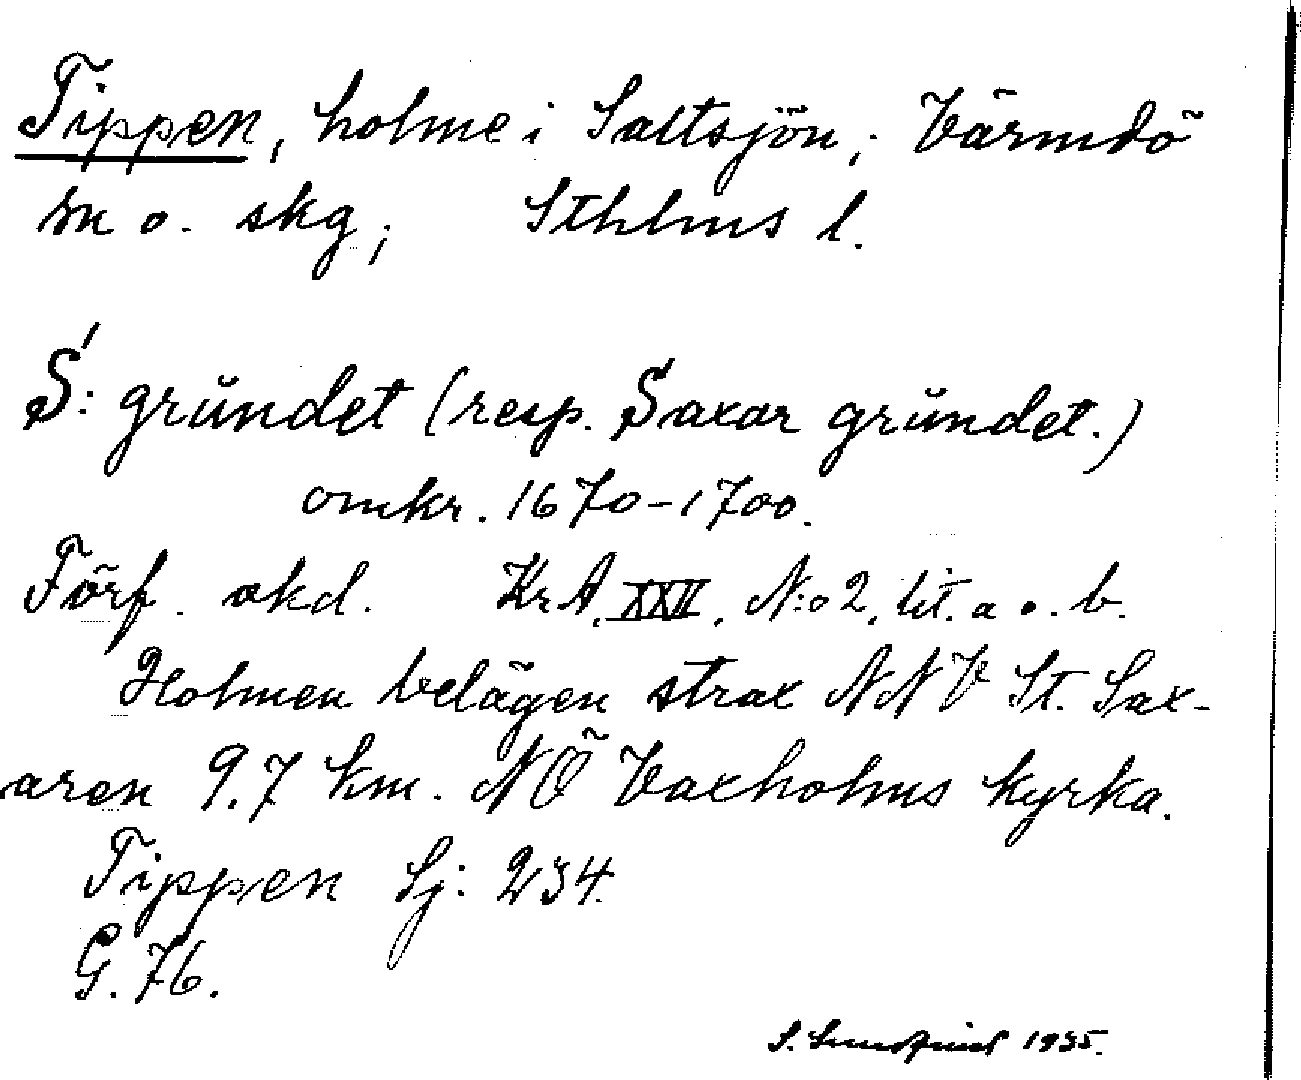 Tippen, holme i Saltsjön; Värmdö
sn o. skg; Sthlms l.
S: grŭndet (resp. Saxar grŭndet.)
omkr. 1670-1700.
Förf. okd. KrA. XXII. N:o 2. lit. a o. b.
Holmen belägen strax NNV St. Sax-
aren 9.7 km. NÖ Vaxholms kyrka.
Tippen Sj: 234.
G. 76.
S. 1935.